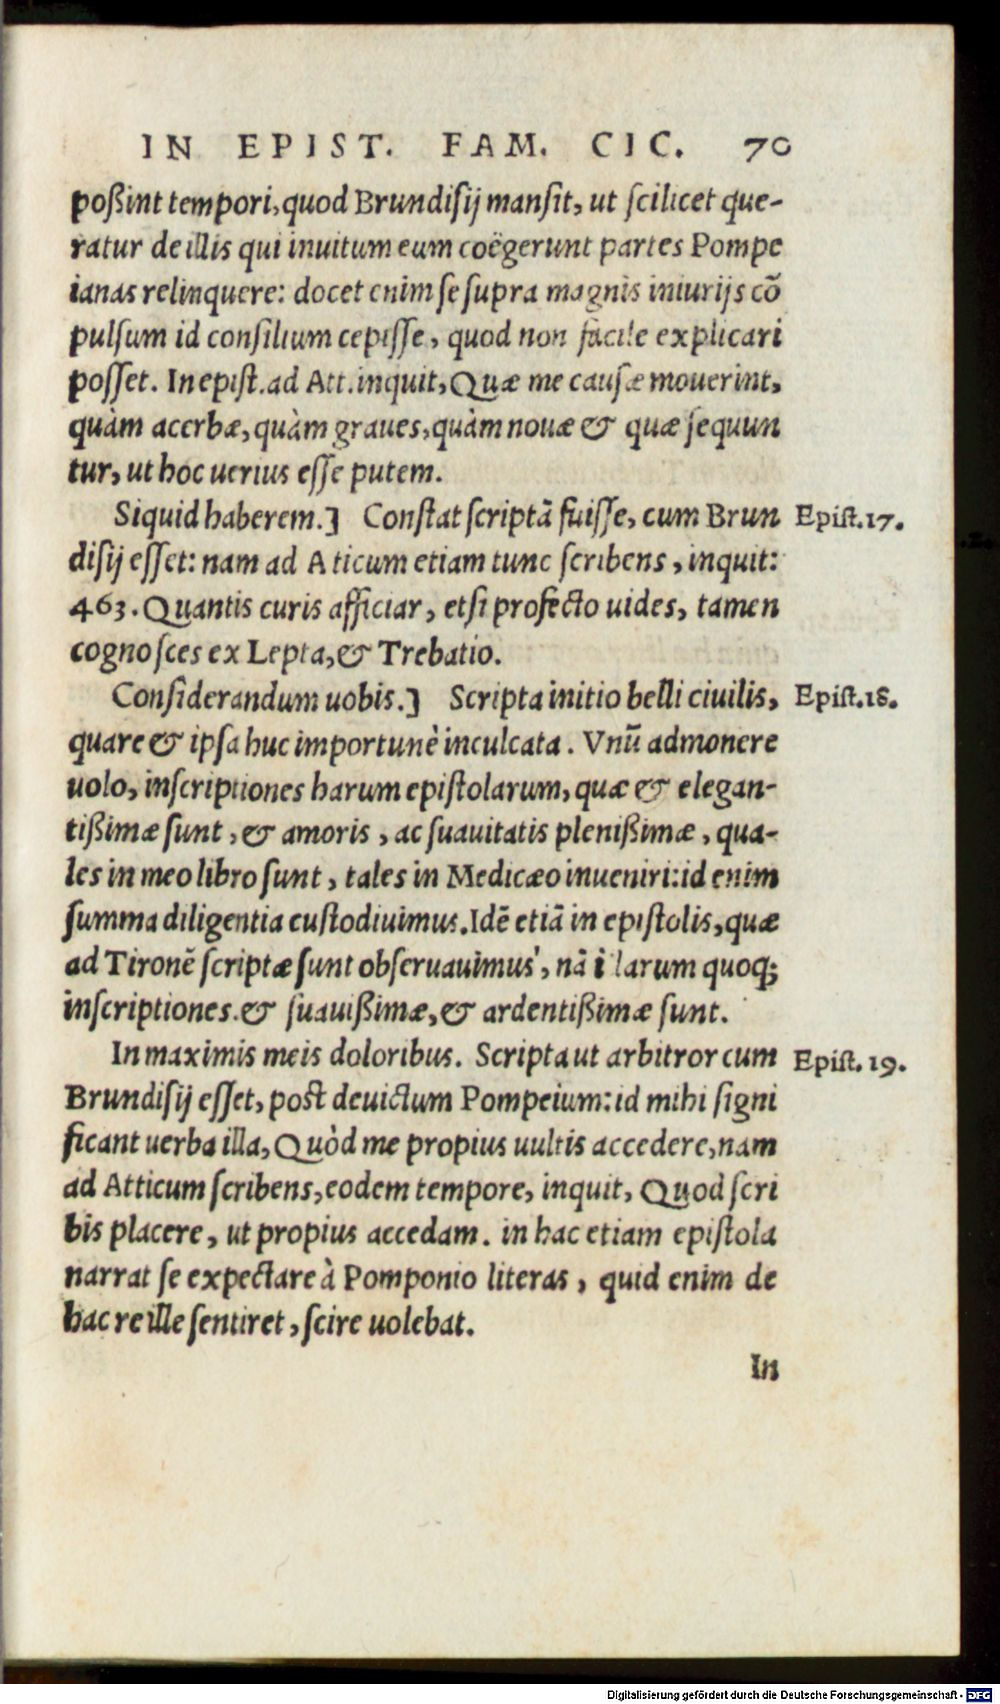 IN EPIST. FAM. CIC. 70
poßint tempori, quod Brundisij mansit, ut scilicet que-
ratur de illis qui inuitum eum coëgerunt partes Pompe
ianas relinquere: docet enim se supra magnis iniurijs cō
pulsum id consilium cepisse, quod non facile explicari
posset. In epist. ad Att. inquit, Quæ me causæ mouerint,
quàm acerbæ, quàm graues, quàm nouæ & quæ sequun
tur, ut hoc uerius esse putem.
Siquid haberem.] Constat scriptā fuisse, cum Brun Epist.17.
disij esset: nam ad Aticum etiam tunc scribens, inquit:
463. Quantis curis afficiar, etsi profecto uides, tamen
cognosces ex Lepta, & Trebatio.
Considerandum uobis.] Scripta initio belli ciuilis, Epist.18.
quare & ipsa huc importunè inculcata. Vnū admonere
uolo, inscriptiones harum epistolarum, quæ & elegan-
tißimæ sunt, & amoris, ac suauitatis plenißimæ, qua-
les in meo libro sunt, tales in Medicæo inueniri: id enim
summa diligentia custodiuimus. Idē etiā in epistolis, quæ
ad Tironē scriptæ sunt obseruauimus, nā illarum quoq;
inscriptiones. & suauißimæ, & ardentißimæ sunt.
In maximis meis doloribus. Scripta ut arbitror cum Epist.19.
Brundisij esset, post deuictum Pompeium: id mihi signi
ficant uerba illa, Quòd me propius uultis accedere, nam
ad Atticum scribens, eodem tempore, inquit, Quod scri
bis placere, ut propius accedam. in hac etiam epistola
narrat se expectare à Pomponio literas, quid enim de
hac re ille sentiret, scire uolebat.
In
Digitalisierung gefördert durch die Deutsche Forschungsgemeinschaft - DFG